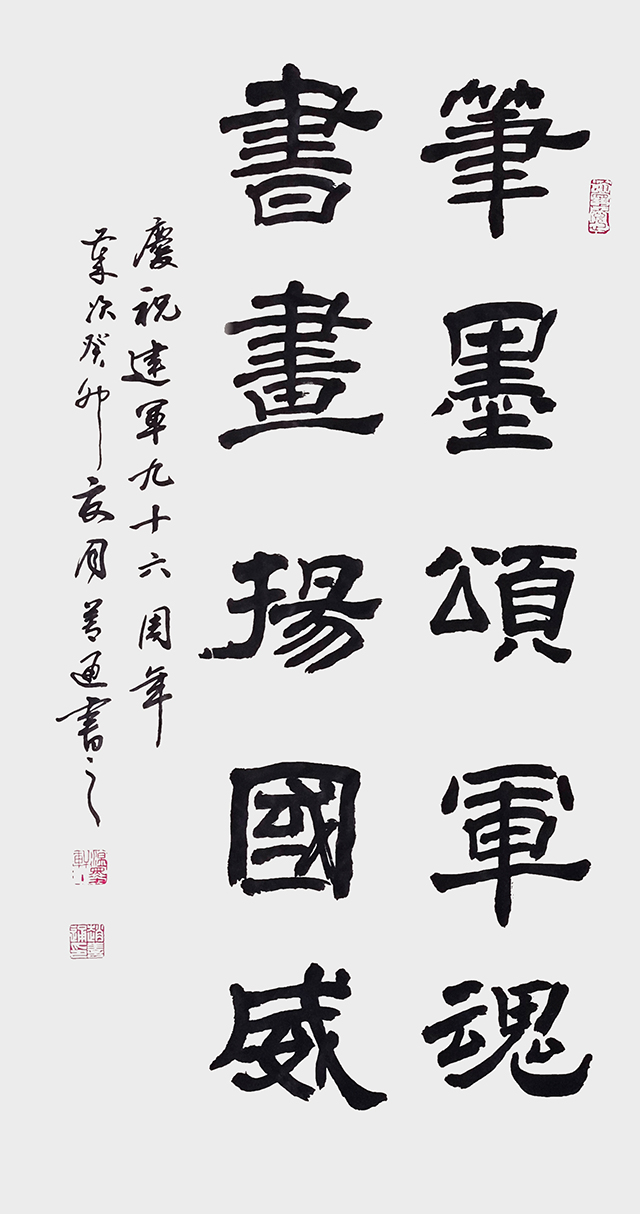 筆墨頌軍魂
書畫揚國威
慶祝建軍九十六周年
歲次癸卯夏月善通書之